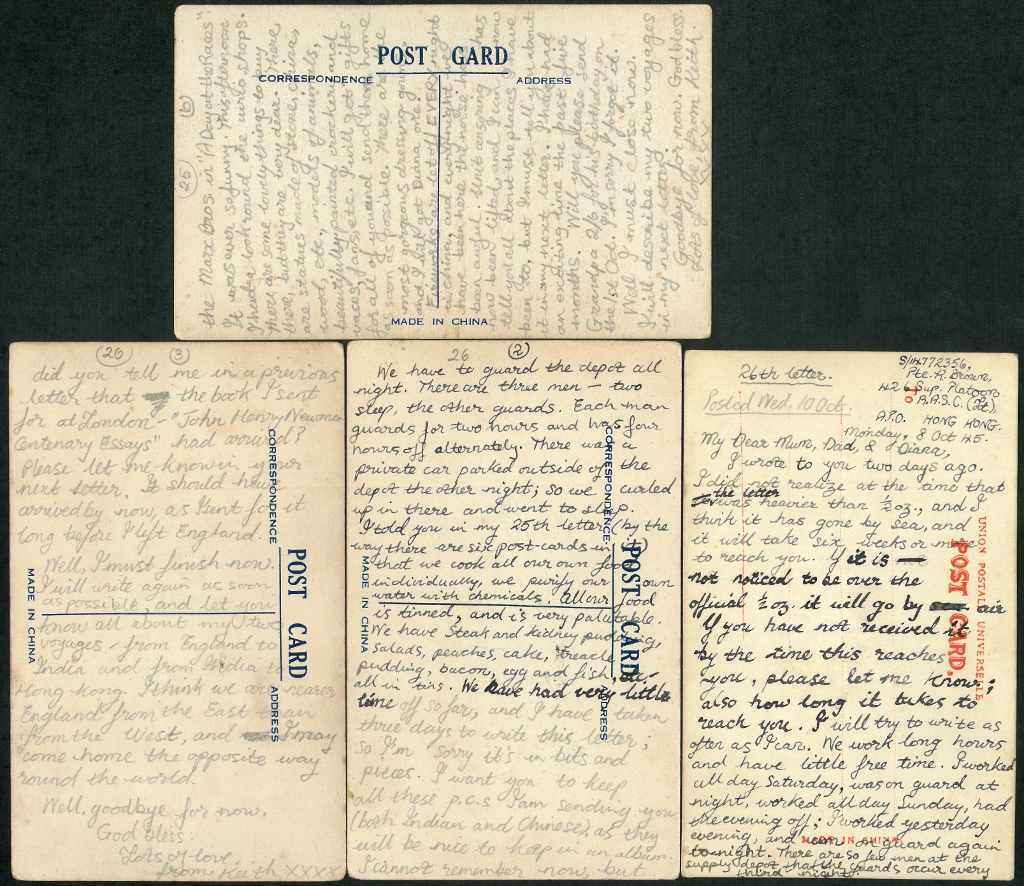 (25) (6)
POST CARD
CORRESPONDENCE
ADDRESS
MADE IN CHINA
the Marx Bros. in "A Day at the Races".
It was ever so funny. This afternoon
I had a look round the curio shops.
There are some lovely things to buy
there, but they are very dear. There
are statues made of stone, china,
wood, etc., models of animals,
beautifully painted crockery and
vases, fans etc. I will get gifts
for all of you and send them home
as soon as possible. There are
most gorgeous dressing gowns
and I will get Diana one.
Fireworks are let off EVERY night
in China, and every night we
have been here the noise has
been awful. Unit censoring has
now been lifted, and I can now
tell you all about the places I have
been to, but I must tell you about
it in my next letter. I have had
an exciting time the past five
months. Will you please send
Grandpa 2/6 for his birthday on
the 1st Oct. I'm sorry I forgot it.
Well I must close now.
I will describe my two voyages
in my next letter.
Goodbye for now. God bless.
Lots of love from Keith
XXX
26 (3)
did you tell me in a previous
letter that the book I sent
for at London - "John Henry Newman
Centenary Essays" had arrived?
Please let me know in your
next letter. It should have
arrived by now, as I sent for it
long before I left England.
Well, I must finish now.
I will write again as soon
as possible, and let you
know all about my two
voyages - from England to
India and from India to
Hong Kong. I think we are nearer
England from the East than
from the West, and I may
come home the opposite way
round the world.
Well, goodbye for now.
God bless.
Lots of love,
from Keith XXXX
CORRESPONDENCE
POST CARD
ADDRESS
MADE IN CHINA
26 (2)
We have to guard the depot all
night. There are three men - two
sleep, the other guards. Each man
guards for two hours and has four
hours off alternately. There was a
private car parked outside of the
depot the other night; so we curled
up in there and went to sleep.
I told you in my 25th letter (by the
way there are six post-cards in it)
that we cook all our own food
individually, we purify our own
water with chemicals. All our food
is tinned, and is very palatable.
We have Steak and kidney pudding,
salads, peaches, cake, treacle
pudding, bacon, egg and fish, etc.-
all in tins. We have had very little
time off so far, and I have taken
three days to write this letter;
so I'm sorry it's in bits and
pieces. I want you to keep
all these p.c.s I am sending you
(both Indian and Chinese), as they
will be nice to keep in an album.
I cannot remember now, but
CORRESPONDENCE
POST CARD
ADDRESS
MADE IN CHINA
S/14772356,
Pte. K. Brown,
426 Sup. Platoon
R.A.S.C. (Lt),
A.P.O. HONG KONG.
Monday, 8 Oct 45.
26th letter.
Posted Wed. 10 Oct.
My Dear Mum, Dad, & Diana,
I wrote to you two days ago.
I did not realize at the time that
the letter
was heavier than ½oz., and I
think it has gone by sea, and
it will take six weeks or more
to reach you. If it is
not noticed to be over the
official ½oz. it will go by air
If you have not received it
by the time this reaches
you, please let me know;
also how long it takes to
reach you. I will try to write as
often as I can. We work long hours
and have little free time. I worked
all day Saturday, was on guard at
night, worked all day Sunday, had
the evening off; I worked yesterday
evening, and am on guard again
tonight. There are so few men at the
supply depot that the guards occur every
third night.
UNION POSTALE UNIVERSELLE
POST CARD.
MADE IN CHINA